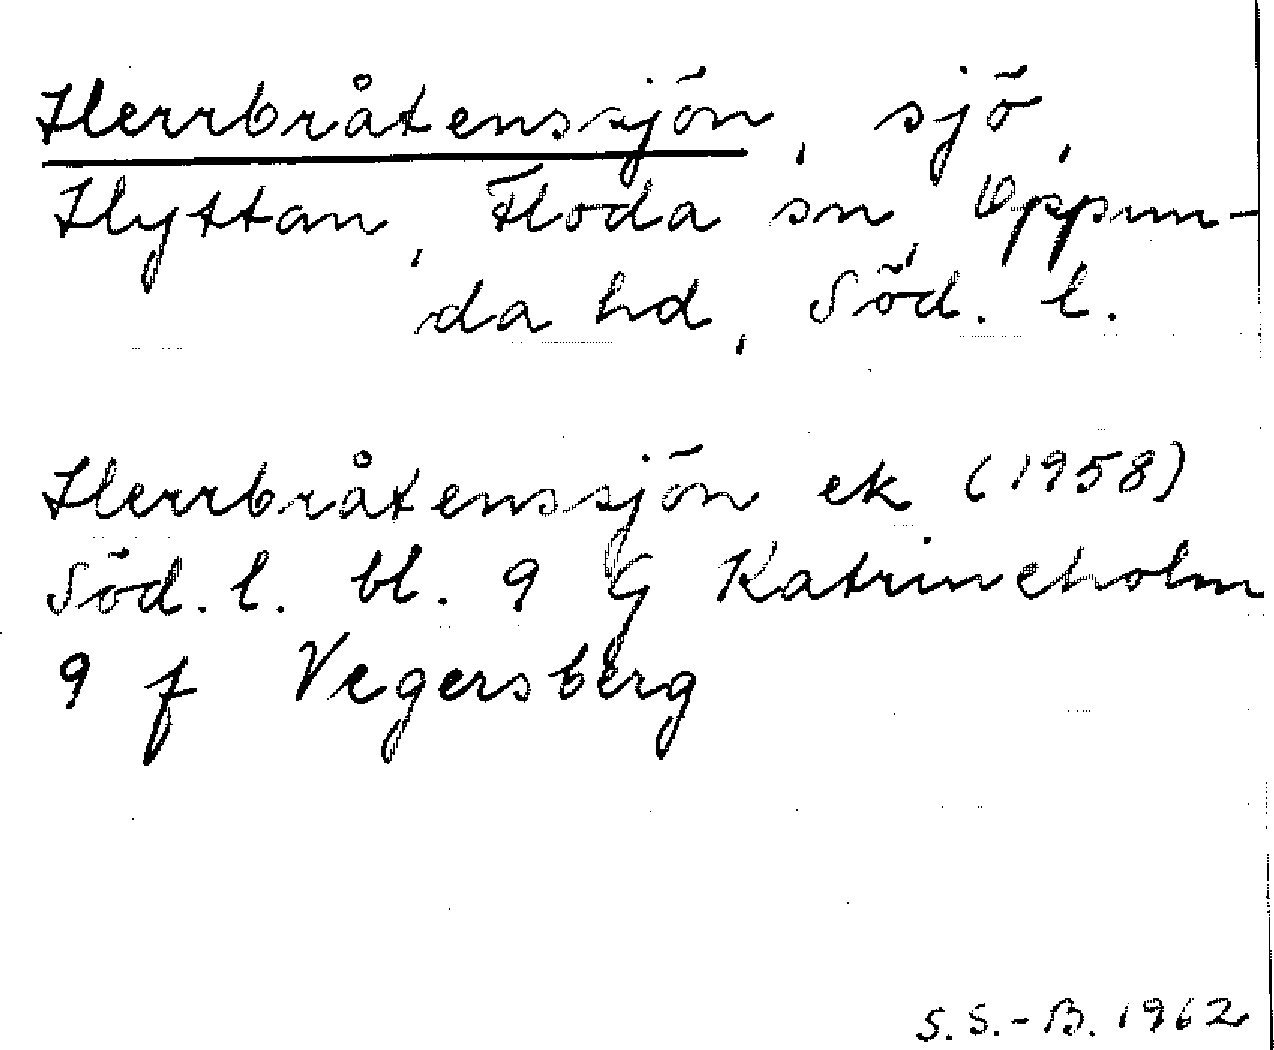 Herrbråtenssjön, sjö,
Hyttan, Floda sn, Oppun-
da hd, Söd. l.
Herrbråtenssjön ek (1958)
Söd. l. bl. 9 G Katrineholm
9 f Vegersberg
S. S.-B. 1962